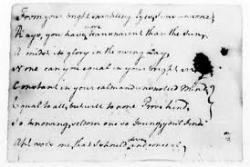 From your bright sparkling Eyes, I was undone
Rays, you have more transparent than the Sun,
A midst its glory in the rising Day,
None can you equal in your bright array
Constant in your calm and unspotted Mind
Equal to all, but will to none Prove kind,
So knowing, seldom one so Young, you'l Find
Ah! woe's me, that I should Love and conceal